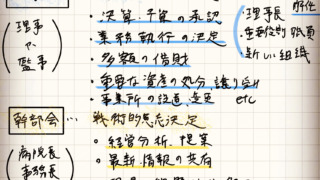 理事
や
監事
・決算・予算の承認
・業務執行の決定
・多額の借財
・重要な資産の処分、譲り受け
・事業所の設置、変更 etc
・理事長 解任
・重要役割職員
・新しい組織
幹部会…戦術的意志決定
病院長
事務長
・経営分析、提案
・最新情報の共有